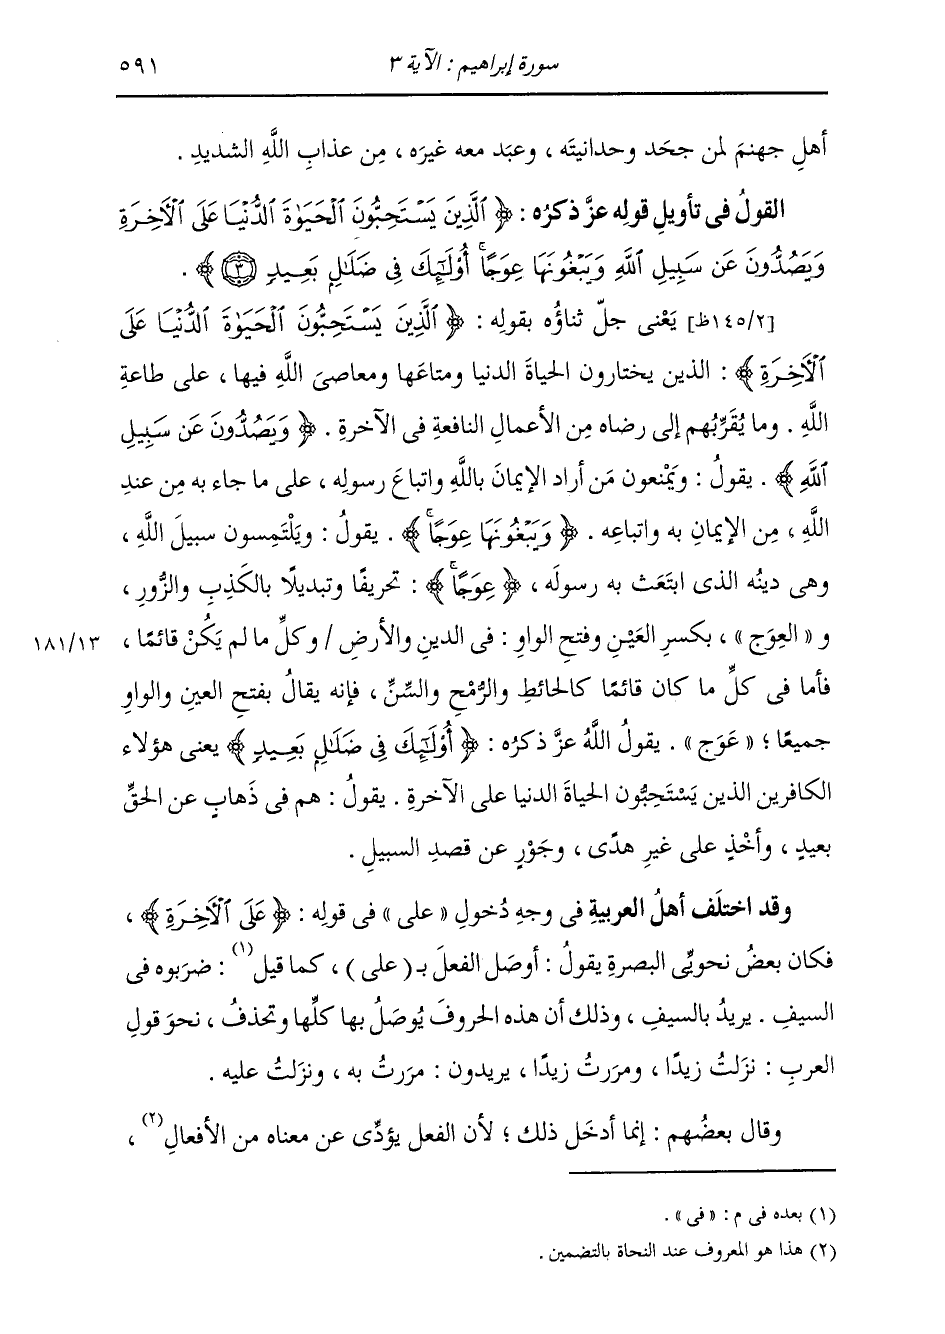 سورة إبراهيم : الآية ٣
٥٩١
أهلِ جهنمَ لمن جحَد وحدانيتَه ، وعبَد معه غيرَه ، مِن عذابِ اللَّهِ الشديدِ .
القولُ فى تأويلِ قولِه عزَّ ذكرُه : ﴿ ٱلَّذِينَ يَسْتَحِبُّونَ ٱلْحَيَوٰةَ ٱلدُّنْيَا عَلَى ٱلْأَخِرَةِ
وَيَصُدُّونَ عَن سَبِيلِ ٱللَّهِ وَيَبْغُونَهَا عِوَجًاۚ أُوْلَٰٓئِكَ فِى ضَلَٰلٍۭ بَعِيدٍ ۝٣ ﴾ .
[١٤٥/٢ظ] يَعْنى جلّ ثناؤُه بقولِه : ﴿ ٱلَّذِينَ يَسْتَحِبُّونَ ٱلْحَيَوٰةَ ٱلدُّنْيَا عَلَى
ٱلْأَخِرَةِ ﴾ : الذين يختارون الحياةَ الدنيا ومتاعَها ومعاصىَ اللَّهِ فيها ، على طاعةِ
اللَّهِ . وما يُقَرِّبُهم إلى رضاه مِن الأعمالِ النافعةِ فى الآخرةِ . ﴿ وَيَصُدُّونَ عَن سَبِيلِ
ٱللَّهِ ﴾ . يقولُ : ويَمْنعون مَن أراد الإيمانَ باللَّهِ واتباعَ رسولِه ، على ما جاء به مِن عندِ
اللَّهِ ، مِن الإيمانِ به واتباعِه . ﴿ وَيَبْغُونَهَا عِوَجًاۚ ﴾ . يقولُ : ويَلْتَمِسون سبيلَ اللَّهِ ،
وهى دينُه الذى ابتَعَث به رسولَه ، ﴿ عِوَجًاۚ ﴾ : تحريفًا وتبديلًا بالكَذِبِ والزُّورِ ،
و « العِوَج » ، بكسرِ العَيْنِ وفتحِ الواوِ : فى الدينِ والأرضِ / وكلِّ ما لم يَكُنْ قائمًا ،
١٨١/١٣
فأما فى كلِّ ما كان قائمًا كالحائطِ والرُّمْحِ والسِّنِّ ، فإنه يقالُ بفتحِ العينِ والواوِ
جميعًا ؛ « عَوَج » . يقولُ اللَّهُ عزَّ ذكرُه : ﴿ أُوْلَٰٓئِكَ فِى ضَلَٰلٍۭ بَعِيدٍ ﴾ يعنى هؤلاء
الكافرين الذين يَسْتَحِبُّون الحياةَ الدنيا على الآخرةِ . يقولُ : هم فى ذَهابٍ عن الحقِّ
بعيدٍ ، وأخْذٍ على غيرِ هدًى ، وجَوْرٍ عن قصدِ السبيلِ .
وقد اختلَف أهلُ العربيةِ فى وجهِ دُخولِ « على » فى قولِه : ﴿ عَلَى ٱلْأَخِرَةِ ﴾ ،
فكان بعضُ نحويِّى البصرةِ يقولُ : أوصَل الفعلَ بـ ( على ) ، كما قيل (١) : ضرَبوه فى
السيفِ . يريدُ بالسيفِ ، وذلك أن هذه الحروفَ يُوصَلُ بها كلِّها وتحذفُ ، نحوَ قولِ
العربِ : نزَلتُ زيدًا ، ومرَرتُ زيدًا ، يريدون : مرَرتُ به ، ونزَلتُ عليه .
وقال بعضُهم : إنما أدخَل ذلك ؛ لأن الفعل يؤدِّى عن معناه من الأفعالِ (٢) ،
(١) بعده فى م : « فى » .
(٢) هذا هو المعروف عند النحاة بالتضمين .